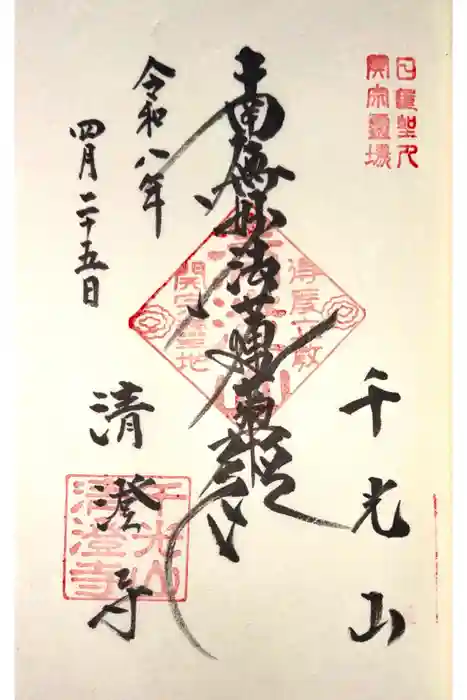 日蓮聖人
開宗霊場
千光山
南無妙法蓮華経
得度立教
開宗聖地
令和八年
四月二十五日
清澄寺
千光山
清澄寺